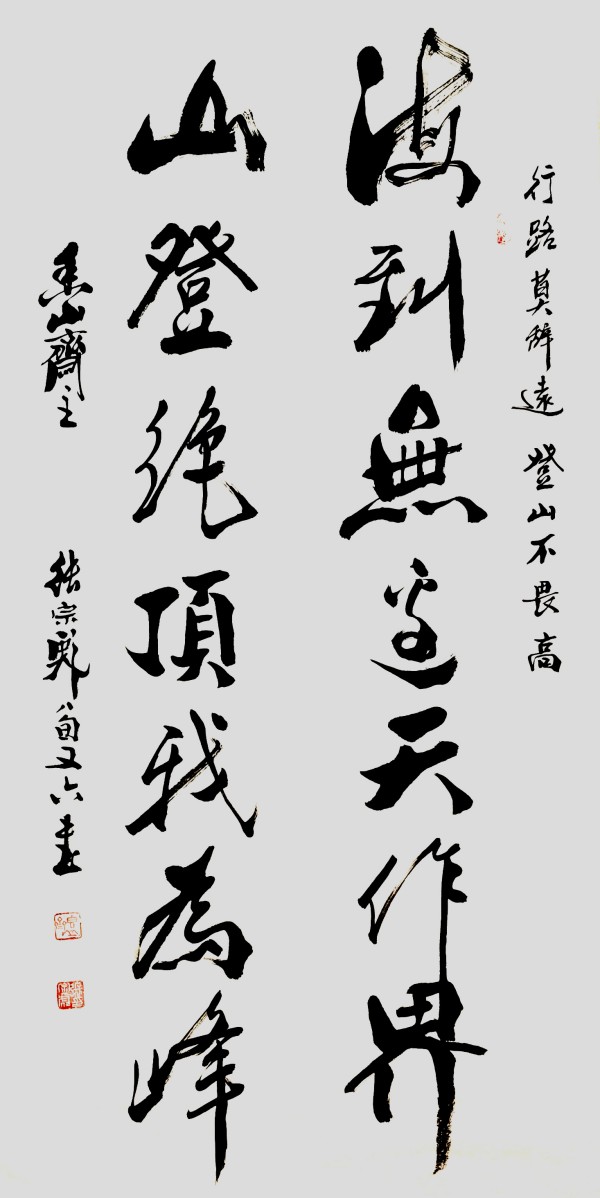 行路莫辞遠 登山不畏高
海到無邊天作界
山登绝頂我為峰
香山齋主
张宗彪八旬又六書